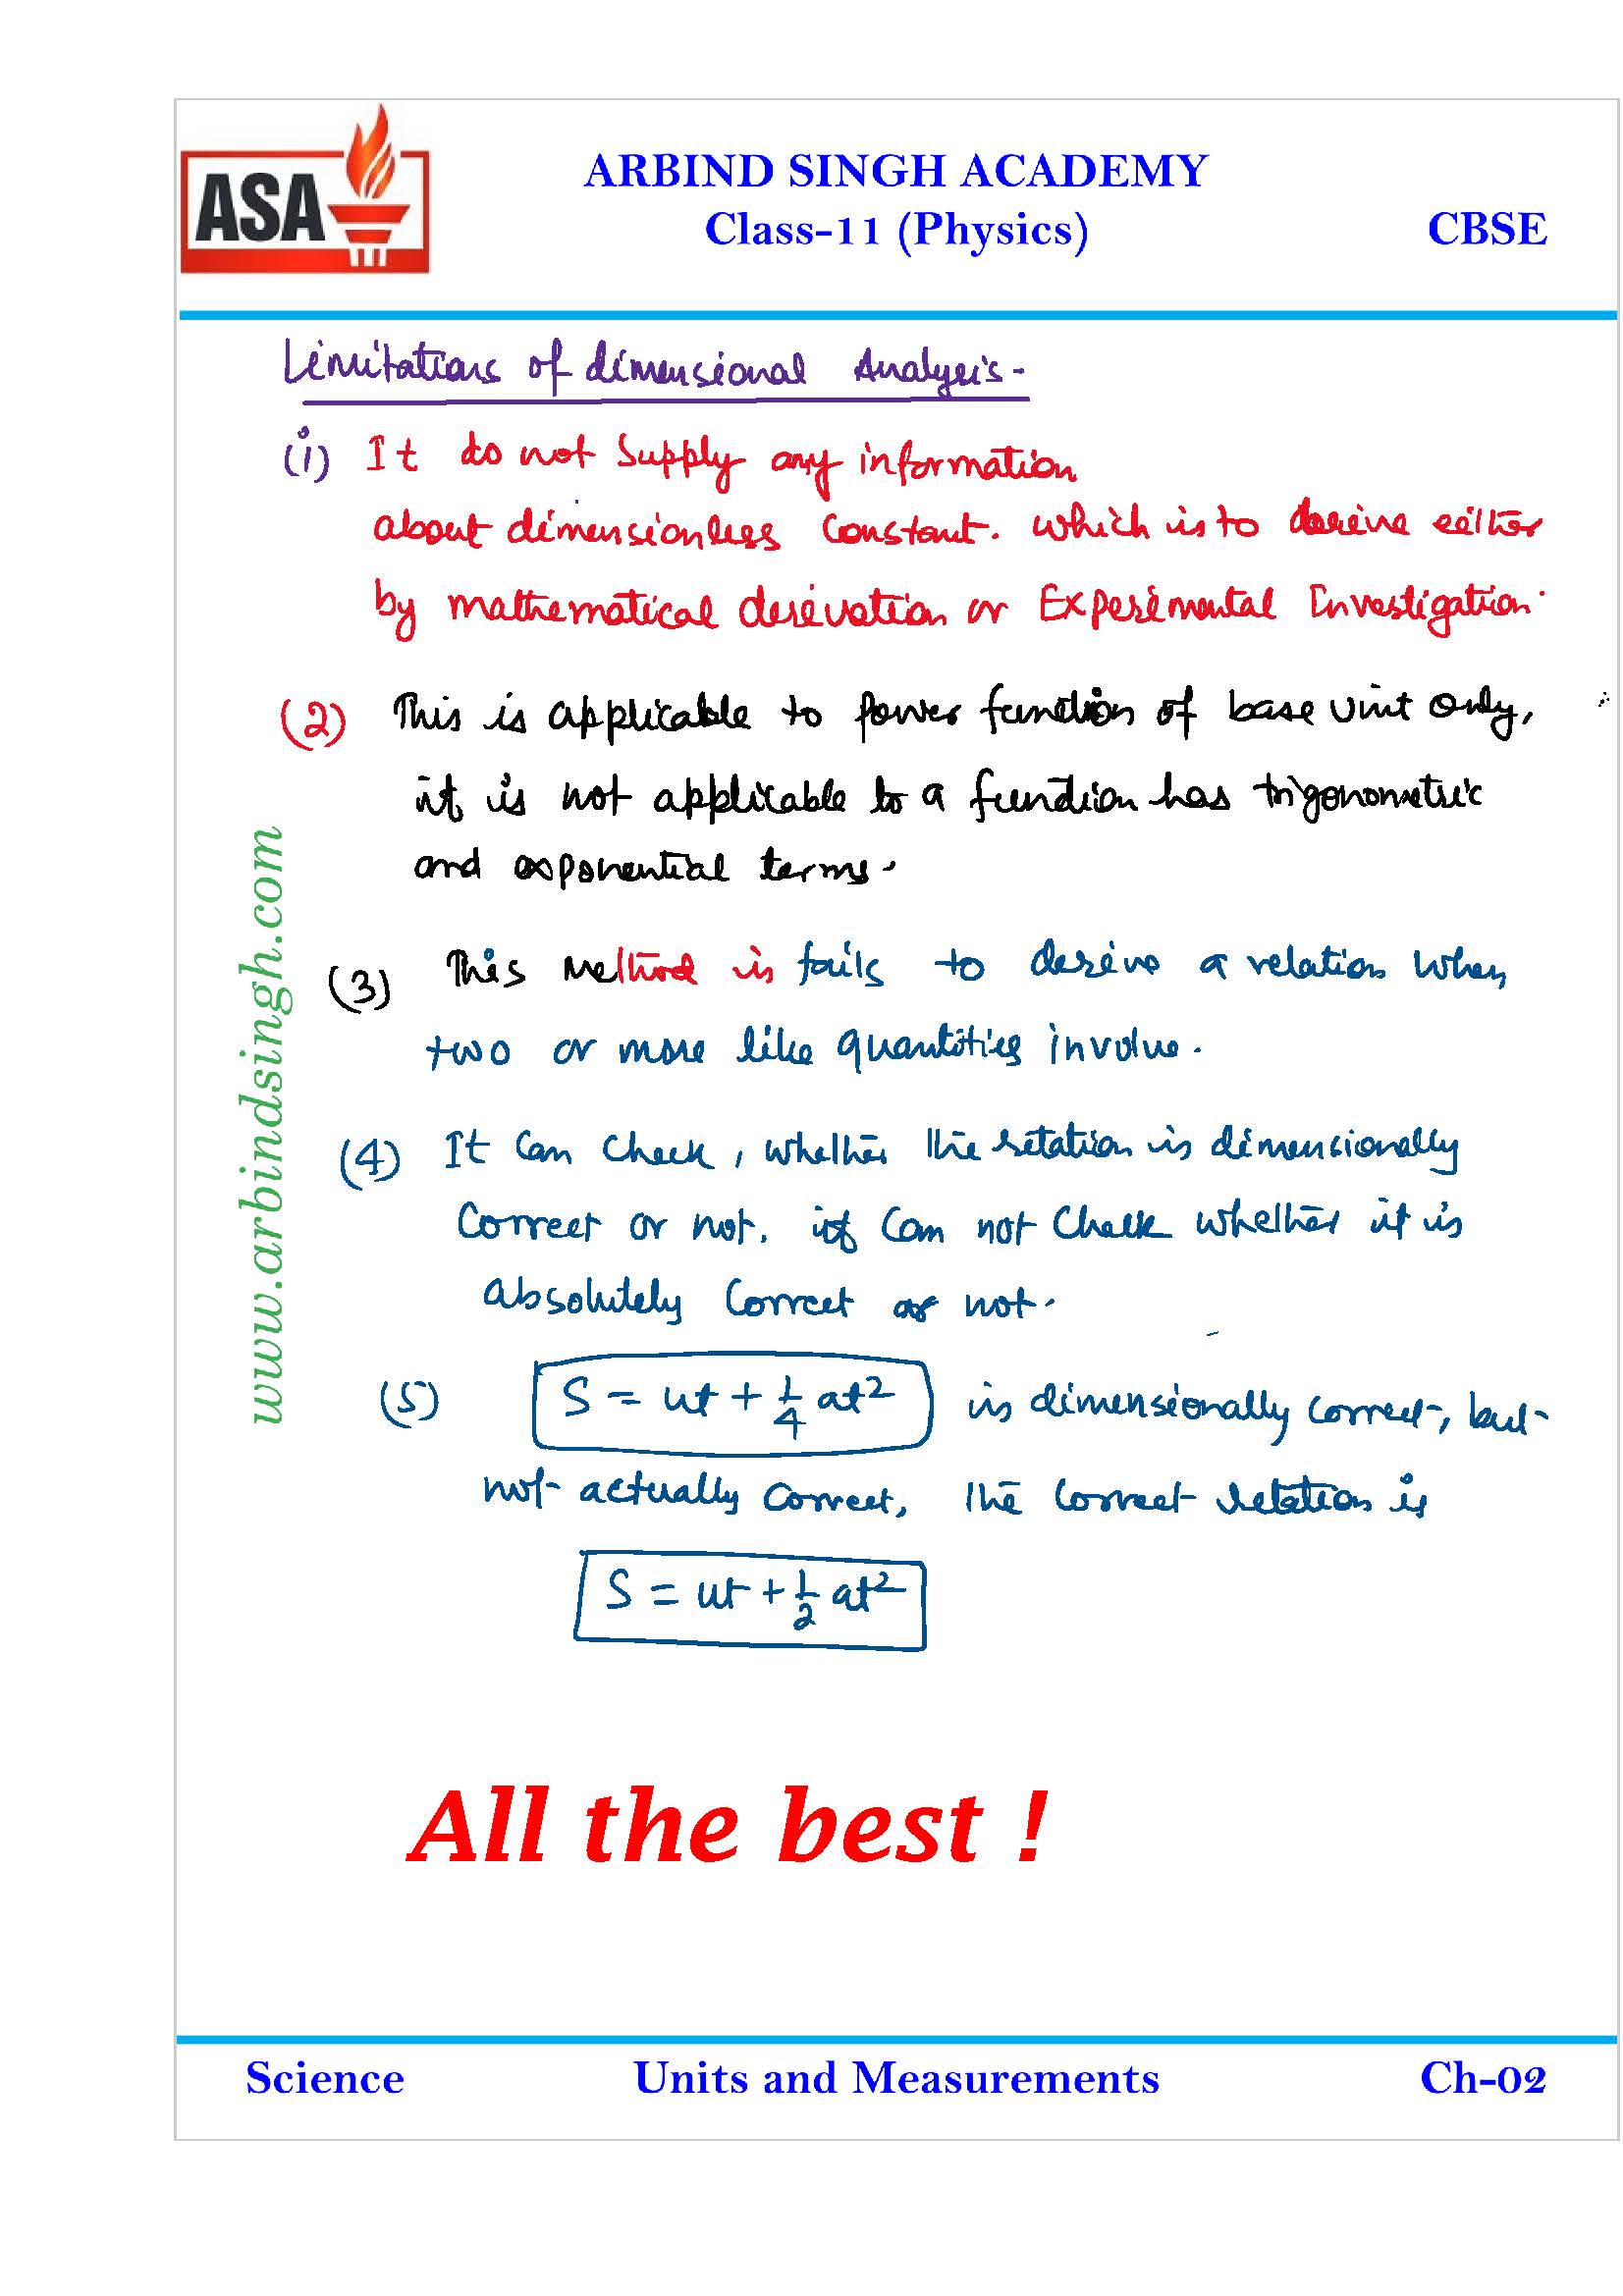 ASA
ARBIND SINGH ACADEMY
Class-11 (Physics)
CBSE
Limitations of dimensional Analysis-
(i) It do not Supply any information
about dimensionless Constant. which is to derive either
by mathematical derivation or Experimental Investigation.
(2) This is applicable to power function of base unit only,
it is not applicable to a function has trigonometric
and exponential terms.
(3) This method is fails to derive a relation when
two or more like quantities involve.
(4) It Can Check, whether the relation is dimensionally
Correct or not. it Can not Check whether it is
absolutely Correct or not.
(5) S = ut + 1/4 at² is dimensionally correct, but
not actually correct, the correct relation is
S = ut + 1/2 at²
www.arbindsingh.com
All the best !
Science
Units and Measurements
Ch-02